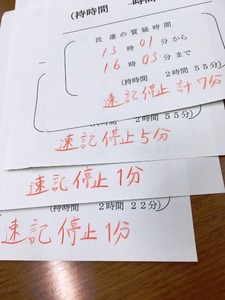 (持時間 時間
民進の質疑時間
13時01分から
16時03分まで
(持時間 2時間55分)
速記停止 計7分
2時間55分)
速記停止5分
速記停止1分
(持時間 2時間22分)
速記停止1分